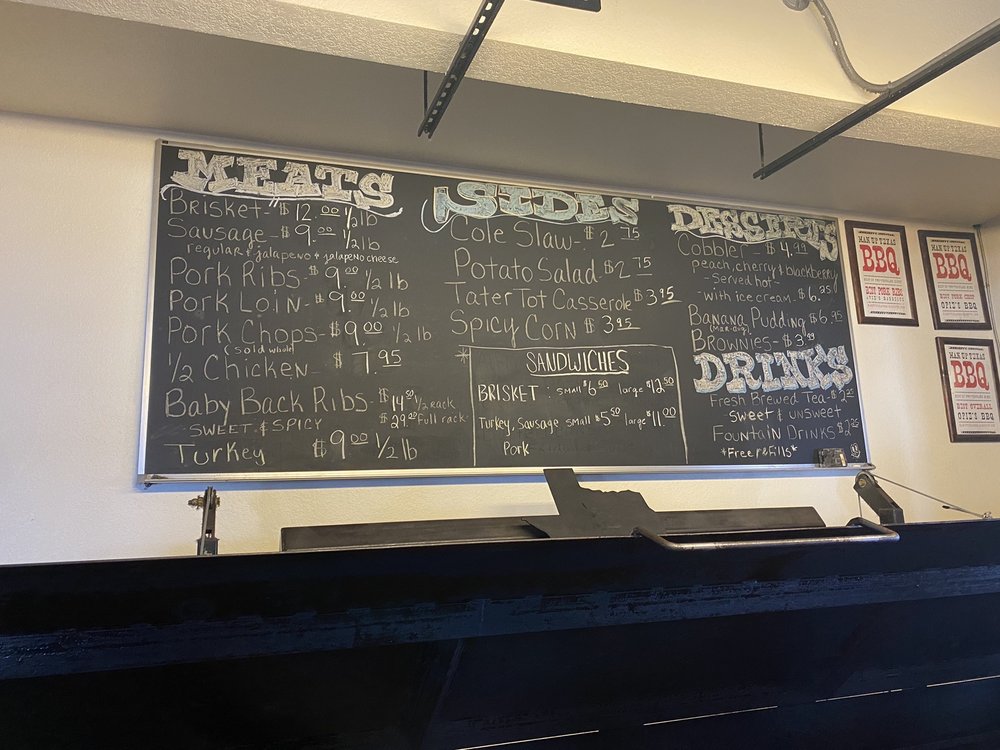 MEATS
Brisket- $12.00 1/2 lb
Sausage- $9.00 1/2 lb
regular & jalapeno & jalapeno cheese
Pork Ribs- $9.00 1/2 lb
Pork Loin- $9.00 1/2 lb
Pork Chops- $9.00 1/2 lb
(sold whole)
1/2 Chicken- $7.95
Baby Back Ribs- $14.50 1/2 rack
$29.00 Full rack
-SWEET & SPICY
Turkey $9.00 1/2 lb
SIDES
Cole Slaw- $2.75
Potato Salad $2.75
Tater Tot Casserole $3.95
Spicy Corn $3.95
*
SANDWICHES
BRISKET: small $6.50 large $12.50
Turkey, Sausage small $5.50 large $11.00
Pork
DESSERTS
Cobbler- $4.99
peach, cherry & blackberry
-served hot-
with ice cream- $6.25
Banana Pudding $6.95
BROWNIES- $3.99
DRINKS
Fresh Brewed Tea-
sweet & unsweet
Fountain Drinks
*Free refills*
MAN UP TEXAS
BBQ
BEST PORK RIBS
OPIE'S BARBECUE
MAN UP TEXAS
BBQ
BEST PORK CHOP
OPIE'S BBQ
MAN UP TEXAS
BBQ
BEST OVERALL
OPIE'S BBQ